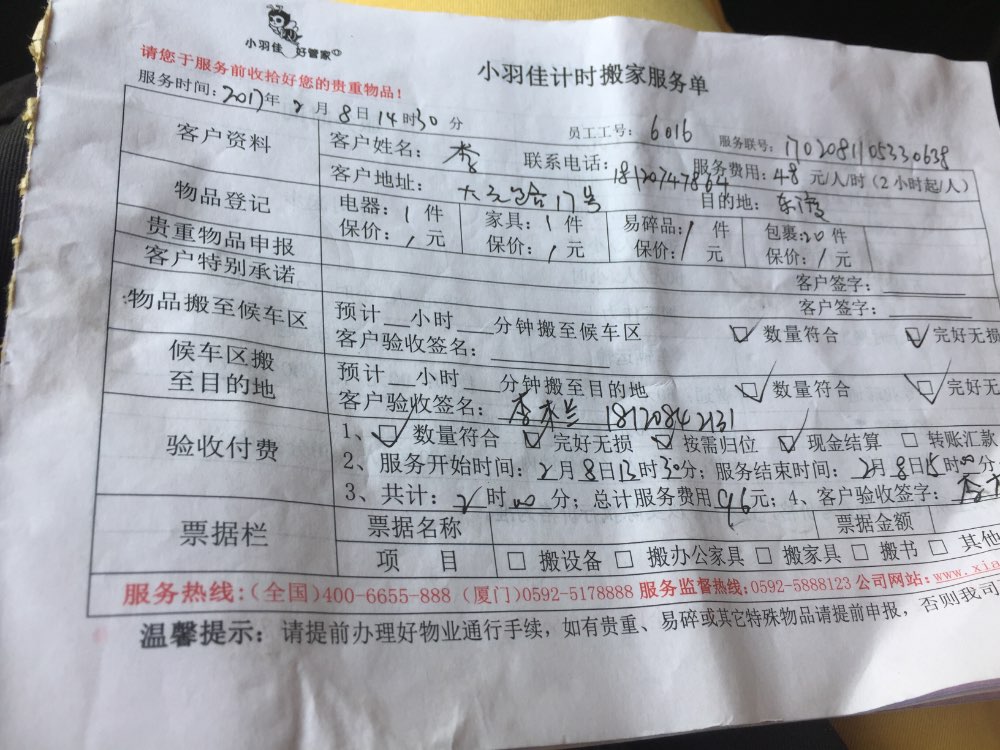 小羽佳 好管家
小羽佳计时搬家服务单
请您于服务前收拾好您的贵重物品！
服务时间：2017年2月8日14时30分 员工工号：6016 服务联号：1702081105330638
客户资料 客户姓名：李 联系电话：18120747864 服务费用：48元/人/时（2小时起/人）
客户地址： 17号 目的地：东渡
物品登记 电器：1件 家具：1件 易碎品：/件 包裹：20件
保价：/元 保价：/元 保价：/元 保价：/元
贵重物品申报 客户签字：
客户特别承诺 客户签字：
物品搬至候车区 预计__小时__分钟搬至候车区 ☑数量符合 ☑完好无损
客户验收签名：
候车区搬至目的地 预计__小时__分钟搬至目的地 ☑数量符合 ☑完好无
客户验收签名：李 兰 18120842131
验收付费 1、☑数量符合 ☑完好无损 ☑按需归位 ☑现金结算 □转账汇款
2、服务开始时间：2月8日13时30分；服务结束时间：2月8日15时00分
3、共计：2时00分；总计服务费用96元；4、客户验收签字：李
票据栏 票据名称 票据金额
项 目 □搬设备 □搬办公家具 □搬家具 □搬书 □其他
服务热线：（全国）400-6655-888（厦门）0592-5178888 服务监督热线：0592-5888123 公司网站：www.xia
温馨提示：请提前办理好物业通行手续，如有贵重、易碎或其它特殊物品请提前申报，否则我司